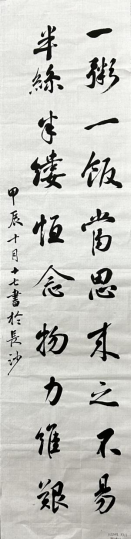 一粥一飯當思來之不易
半絲半縷恒念物力維艱
甲辰十月十七書於長沙